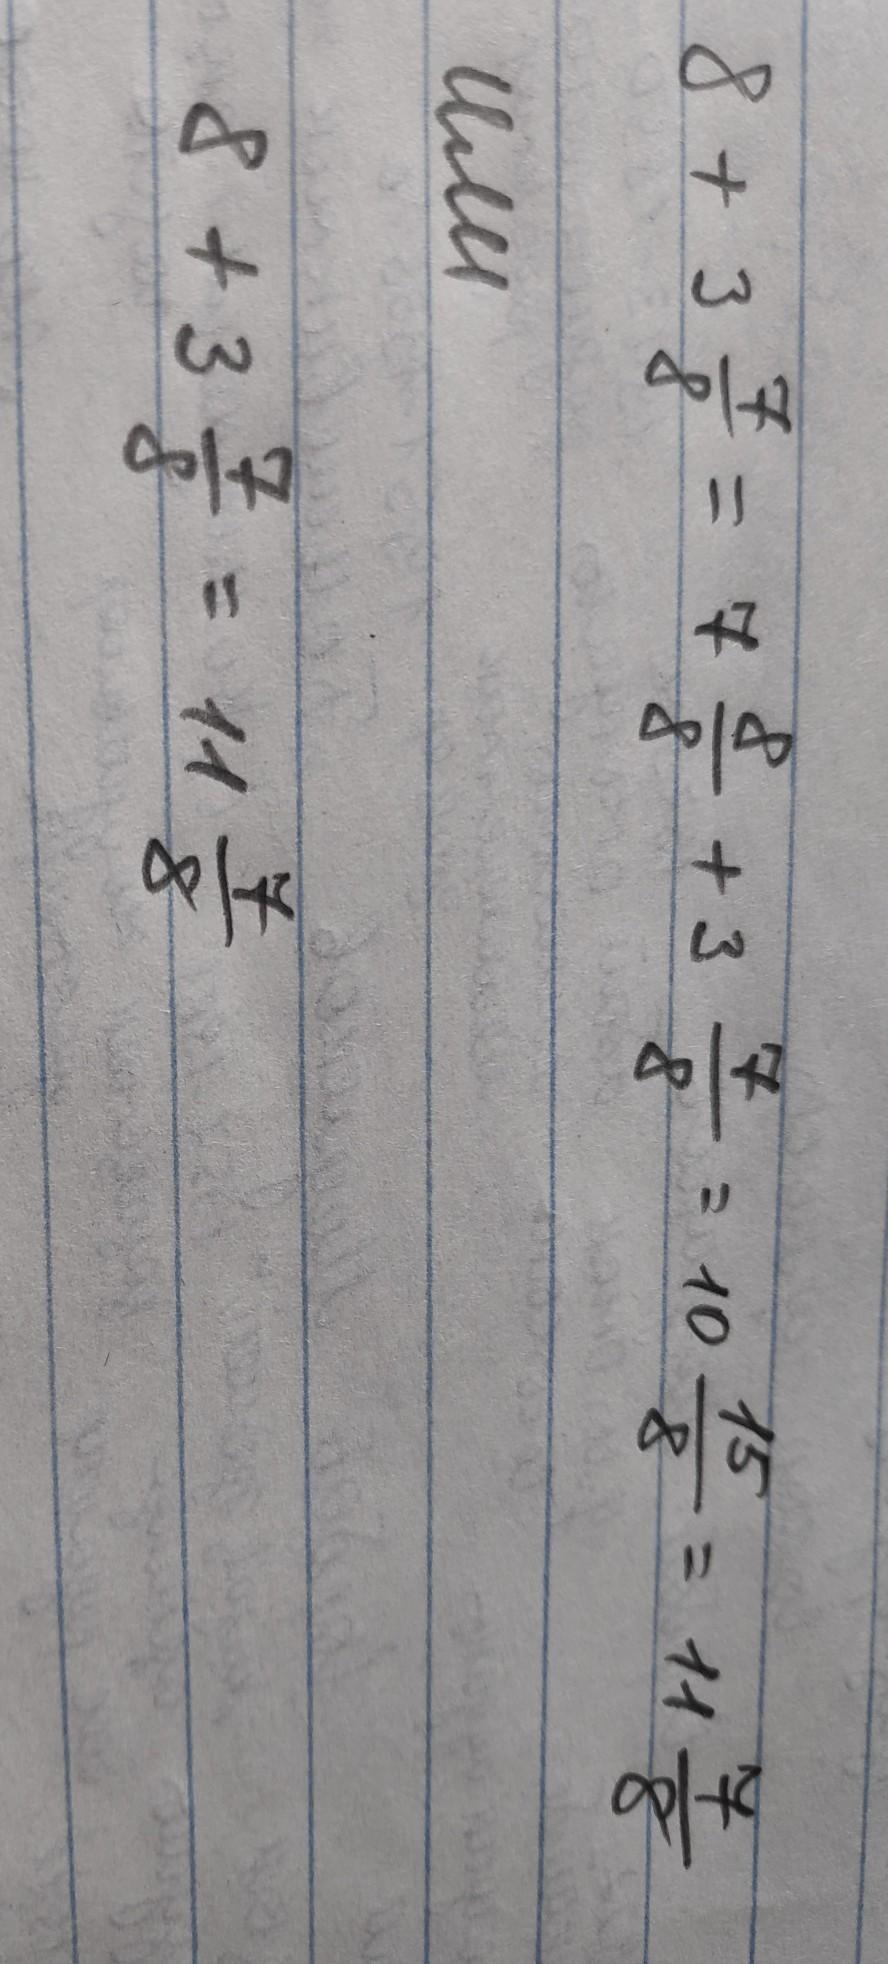 8 + 3 7/8 = 7 8/8 + 3 7/8 = 10 15/8 = 11 7/8
или
8 + 3 7/8 = 11 7/8